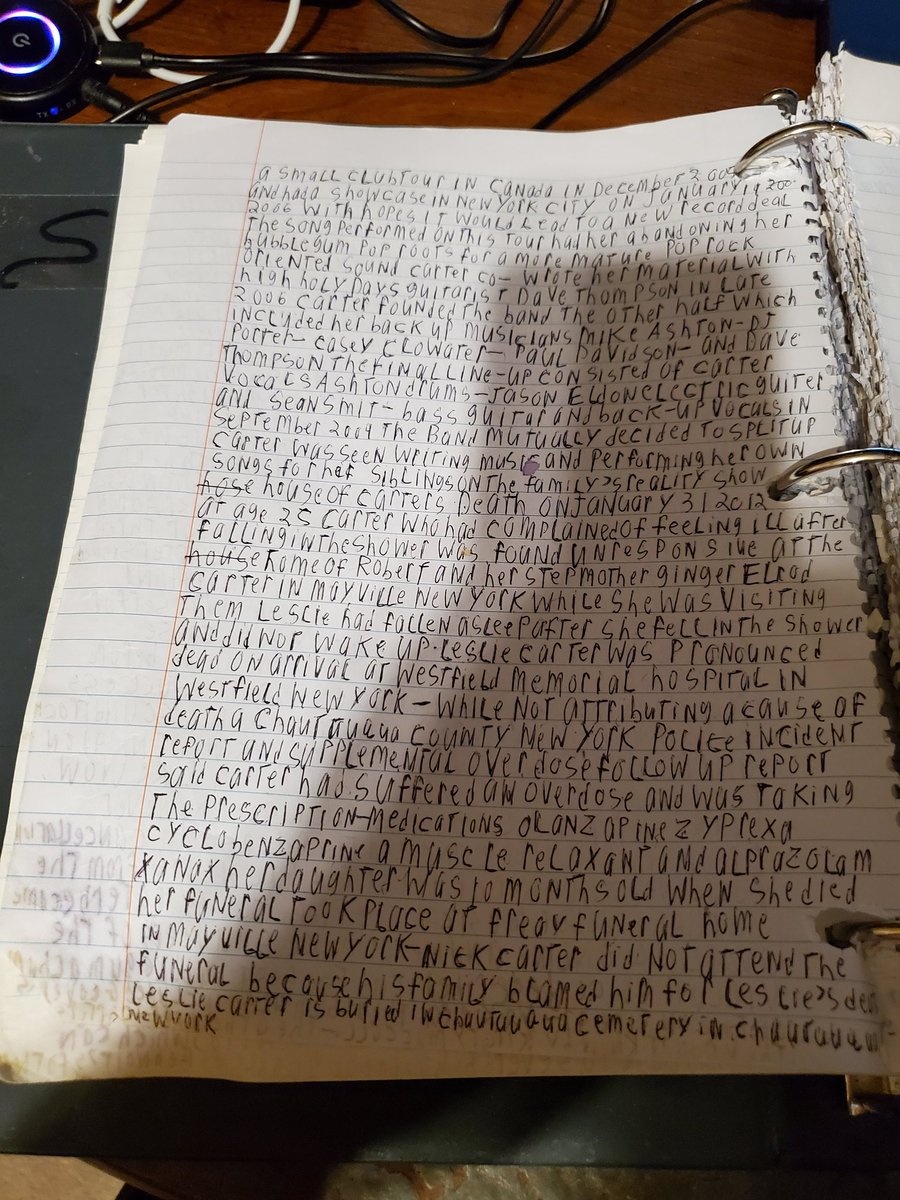 a small club Tour IN Canada IN December 200
and had a showcase IN New York city ON January 19 200
2006 with hopes it would Lead To a New record deal
The song performed ON This Tour had her abandoning her
bubblegum pop roots for a more mature pop rock
oriented sound carter co-wrote her material with
high holy days guitarist Dave Thompson in Late
2006 carter founded The band The other half which
included her back up musicians Mike Ashton-DJ
porter-casey clowater-Paul Davidson-and Dave
Thompson The final Line-up consisted of carter
vocals Ashton drums-Jason Eldon electric guiter
and Sean Smit-bass guitar and back-up vocals in
September 2009 The band mutually decided To split up
carter was seen writing music and performing her own
songs for her siblings on The family's reality show
hose house of carters Death on January 31 2012
at age 25 carter who had complained of feeling ill after
falling in The shower was found unresponsive at The
house home of Robert and her stepmother ginger Elrod
carter in mayville New York while she was visiting
Them Leslie had fallen asleep after she fell in the shower
and did not wake up. Leslie carter was pronounced
dead on arrival at westfield memorial hospital in
westfield New York-while not attributing a cause of
death a Chautauqua county New York police incident
report and supplemental overdose follow up report
said carter had suffered an overdose and was taking
The prescription-medications olanzapine zyprexa
cyclobenzaprine a muscle relaxant and alprazolam
xanax her daughter was 10 months old when she died
her funeral Took place at freay funeral home
in mayville New York-Nick carter did not attend The
funeral because his family blamed him for Leslie's de
Leslie carter is buried in Chautauqua cemetery in
New York